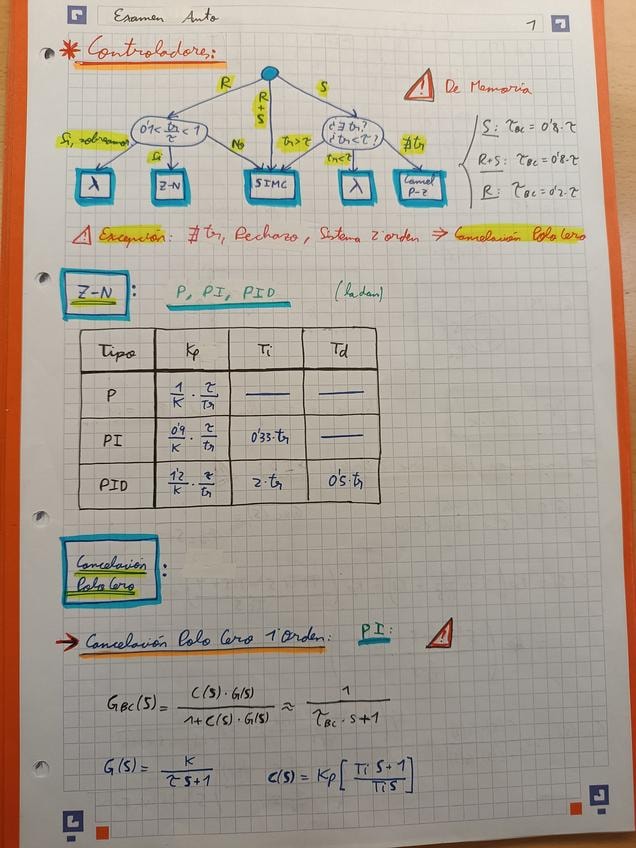 Examen Auto
1
* Controladores:
R
R+S
S
De Memoria
0'1 < tr/τ < 1
¿∄ tr?
¿tr < τ?
Si, sobreamor
Si
No
tr > τ
tr < τ
∄ tr
λ
Z-N
SIMC
λ
Cancel P-Z
S: τBC = 0'8·τ
R+S: τBC = 0'8·τ
R: τBC = 0'2·τ
Excepción: ∄ tr, Rechazo, Sistema 2ºorden ⇒ Cancelación Polo Cero
Z-N: P, PI, PID (la dan)
Tipo Kp Ti Td
P 1/K · τ/tr — —
PI 0'9/K · τ/tr 0'33·tr —
PID 1'2/K · τ/tr 2·tr 0'5·tr
Cancelación
Polo Cero :
→ Cancelación Polo Cero 1ºOrden: PI:
GBC(S) = C(S)·G(S) / 1+C(S)·G(S) ≈ 1 / τBC·S+1
G(S) = K / τS+1 C(S) = Kp [ TiS+1 / TiS ]